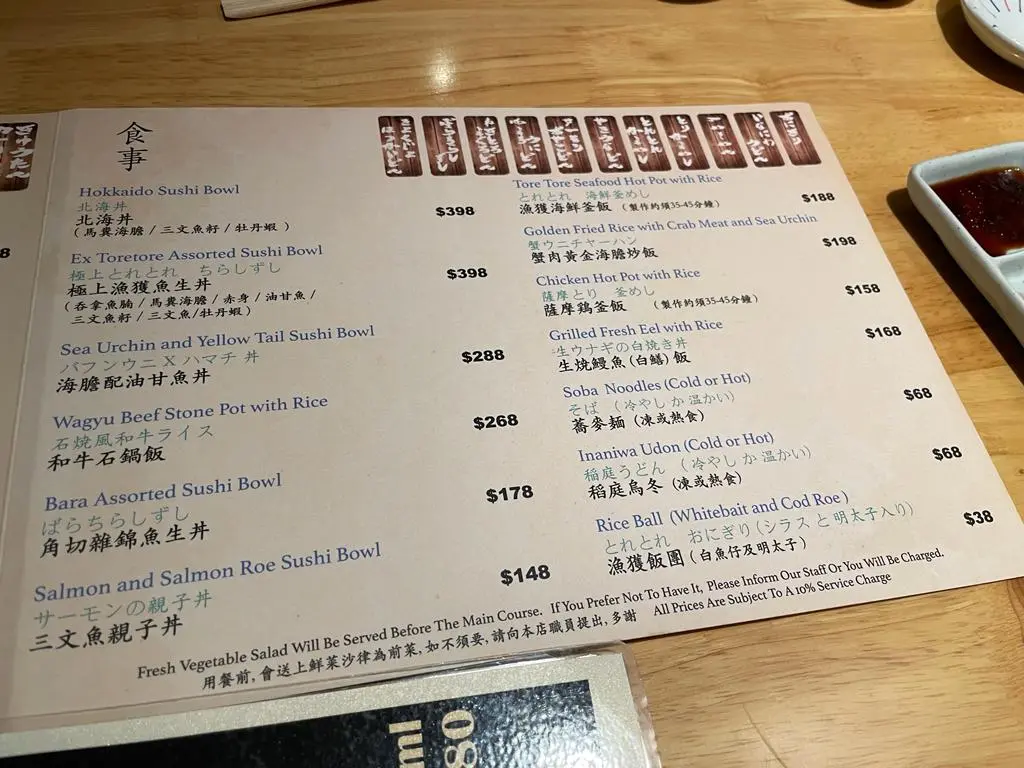 食事
Hokkaido Sushi Bowl
北海丼
北海丼
(馬糞海膽 / 三文魚籽 / 牡丹蝦)
$398
Ex Toretore Assorted Sushi Bowl
極上とれとれ ちらしずし
極上漁獲魚生丼
(吞拿魚腩 / 馬糞海膽 / 赤身 / 油甘魚 /
三文魚籽 / 三文魚/牡丹蝦)
$398
Sea Urchin and Yellow Tail Sushi Bowl
バフンウニ X ハマチ 丼
海膽配油甘魚丼
$288
Wagyu Beef Stone Pot with Rice
石焼風和牛ライス
和牛石鍋飯
$268
Bara Assorted Sushi Bowl
ばらちらしずし
角切雜錦魚生丼
$178
Salmon and Salmon Roe Sushi Bowl
サーモンの親子丼
三文魚親子丼
$148
Tore Tore Seafood Hot Pot with Rice
とれとれ 海鮮釜めし
漁獲海鮮釜飯 (製作約須35-45分鐘)
$188
Golden Fried Rice with Crab Meat and Sea Urchin
蟹ウニチャーハン
蟹肉黃金海膽炒飯
$198
Chicken Hot Pot with Rice
薩摩とり 釜めし
薩摩鶏釜飯 (製作約須35-45分鐘)
$158
Grilled Fresh Eel with Rice
生ウナギの白焼き丼
生燒鰻魚(白鱔)飯
$168
Soba Noodles (Cold or Hot)
そば (冷やし か 温かい)
蕎麥麵 (凍或熱食)
$68
Inaniwa Udon (Cold or Hot)
稲庭うどん (冷やし か 温かい)
稻庭烏冬 (凍或熱食)
$68
Rice Ball (Whitebait and Cod Roe)
とれとれ おにぎり(シラス と 明太子入り)
漁獲飯團 (白魚仔及明太子)
$38
Fresh Vegetable Salad Will Be Served Before The Main Course. If You Prefer Not To Have It, Please Inform Our Staff Or You Will Be Charged.
用餐前, 會送上鮮菜沙律為前菜, 如不須要, 請向本店職員提出, 多謝 All Prices Are Subject To A 10% Service Charge
ml
80
8